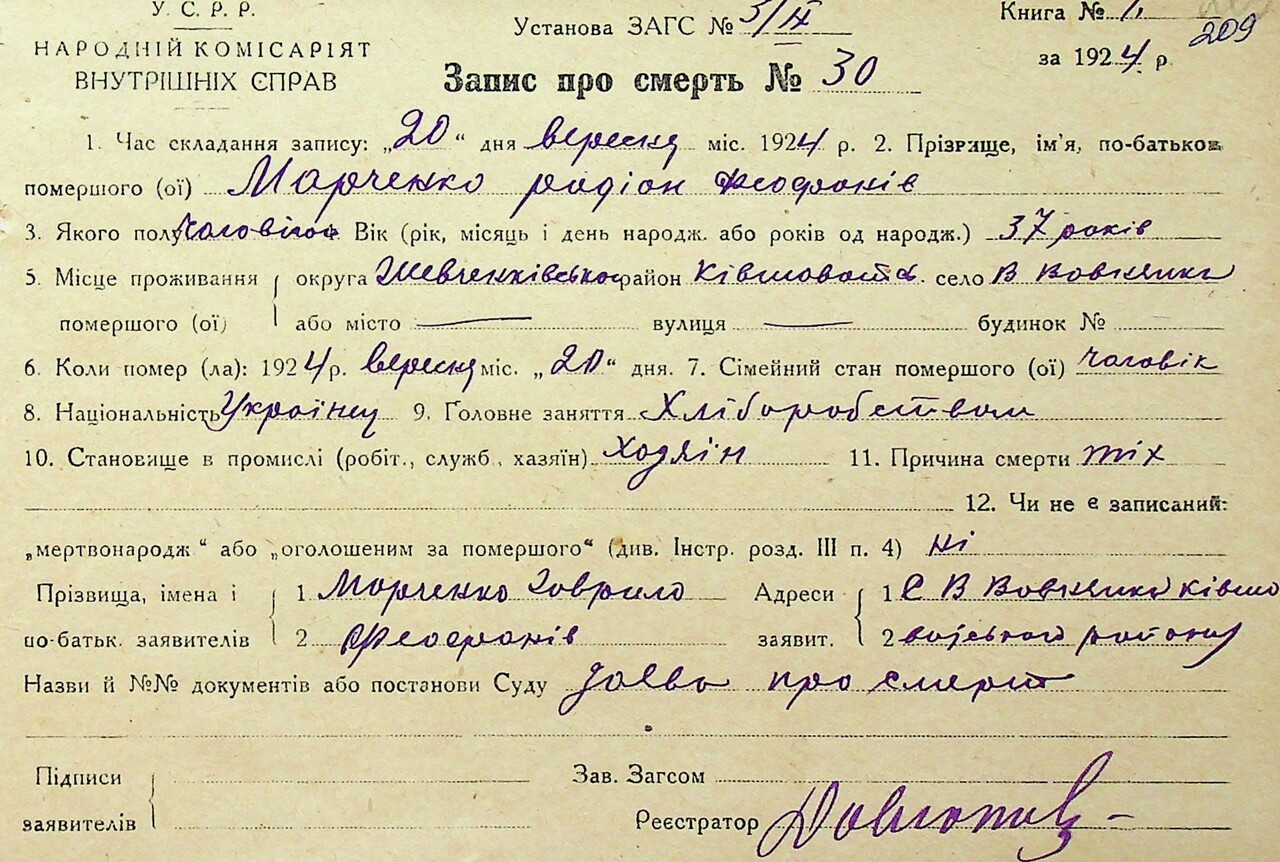 У. С. Р. Р.
НАРОДНІЙ КОМІСАРІЯТ
ВНУТРІШНІХ СПРАВ
Установа ЗАГС № 3/ІХ
Запис про смерть № 30
Книга № 1.
209
за 1924 р.
1. Час складання запису: „20“ дня вересня міс. 1924 р. 2. Прізвище, ім'я, по-батькові
помершого (ої) Марченко родіон Феофанів
3. Якого полу Чоловічого Вік (рік, місяць і день народж. або років од народж.) 37 років
5. Місце проживання округа Шевченківського район Ківшовата село В Вовнянка
помершого (ої) або місто — вулиця — будинок №
6. Коли помер (ла): 1924 р. вересня міс. „20“ дня. 7. Сімейний стан помершого (ої) чоловік
8. Національність Українец 9. Головне заняття Хліборобством
10. Становище в промислі (робіт., служб., хазяїн) Ходяїн 11. Причина смерти тіх
12. Чи не є записаний:
„мертвонародж“ або „оголошеним за помершого“ (див. Інстр. розд. III п. 4) ні
Прізвища, імена і 1 Марченко Говрило Адреси 1 С В Вовнянка Ківшо
по-батьк. заявителів 2 Феофанів заявит. 2 ватського району
Назви й №№ документів або постанови Суду заява про смерт
Підписи Зав. Загсом
заявителів Реєстратор